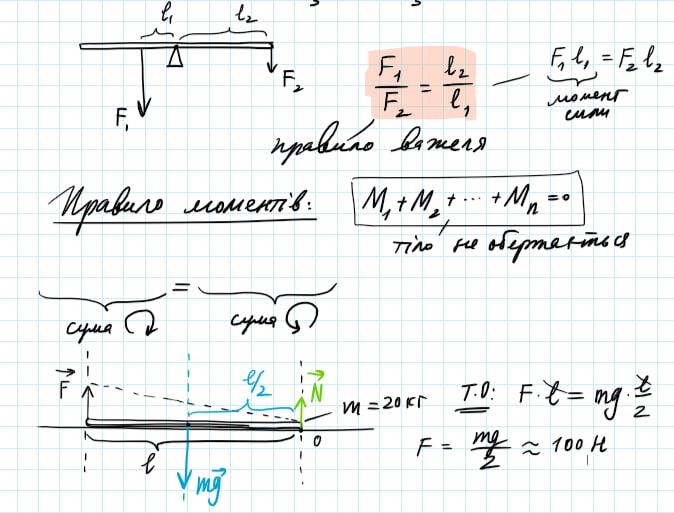 l₁ l₂
F₁ F₂
F₁/F₂ = l₂/l₁ — F₁l₁ = F₂l₂
момент
сили
правило важеля
Правило моментів: M₁ + M₂ + ... + Mₙ = 0
тіло не обертається
=
сума сума
F l/2 N m = 20 кг Т.О: F · l = mg · l/2
l mg O F = mg/2 ≈ 100 Н